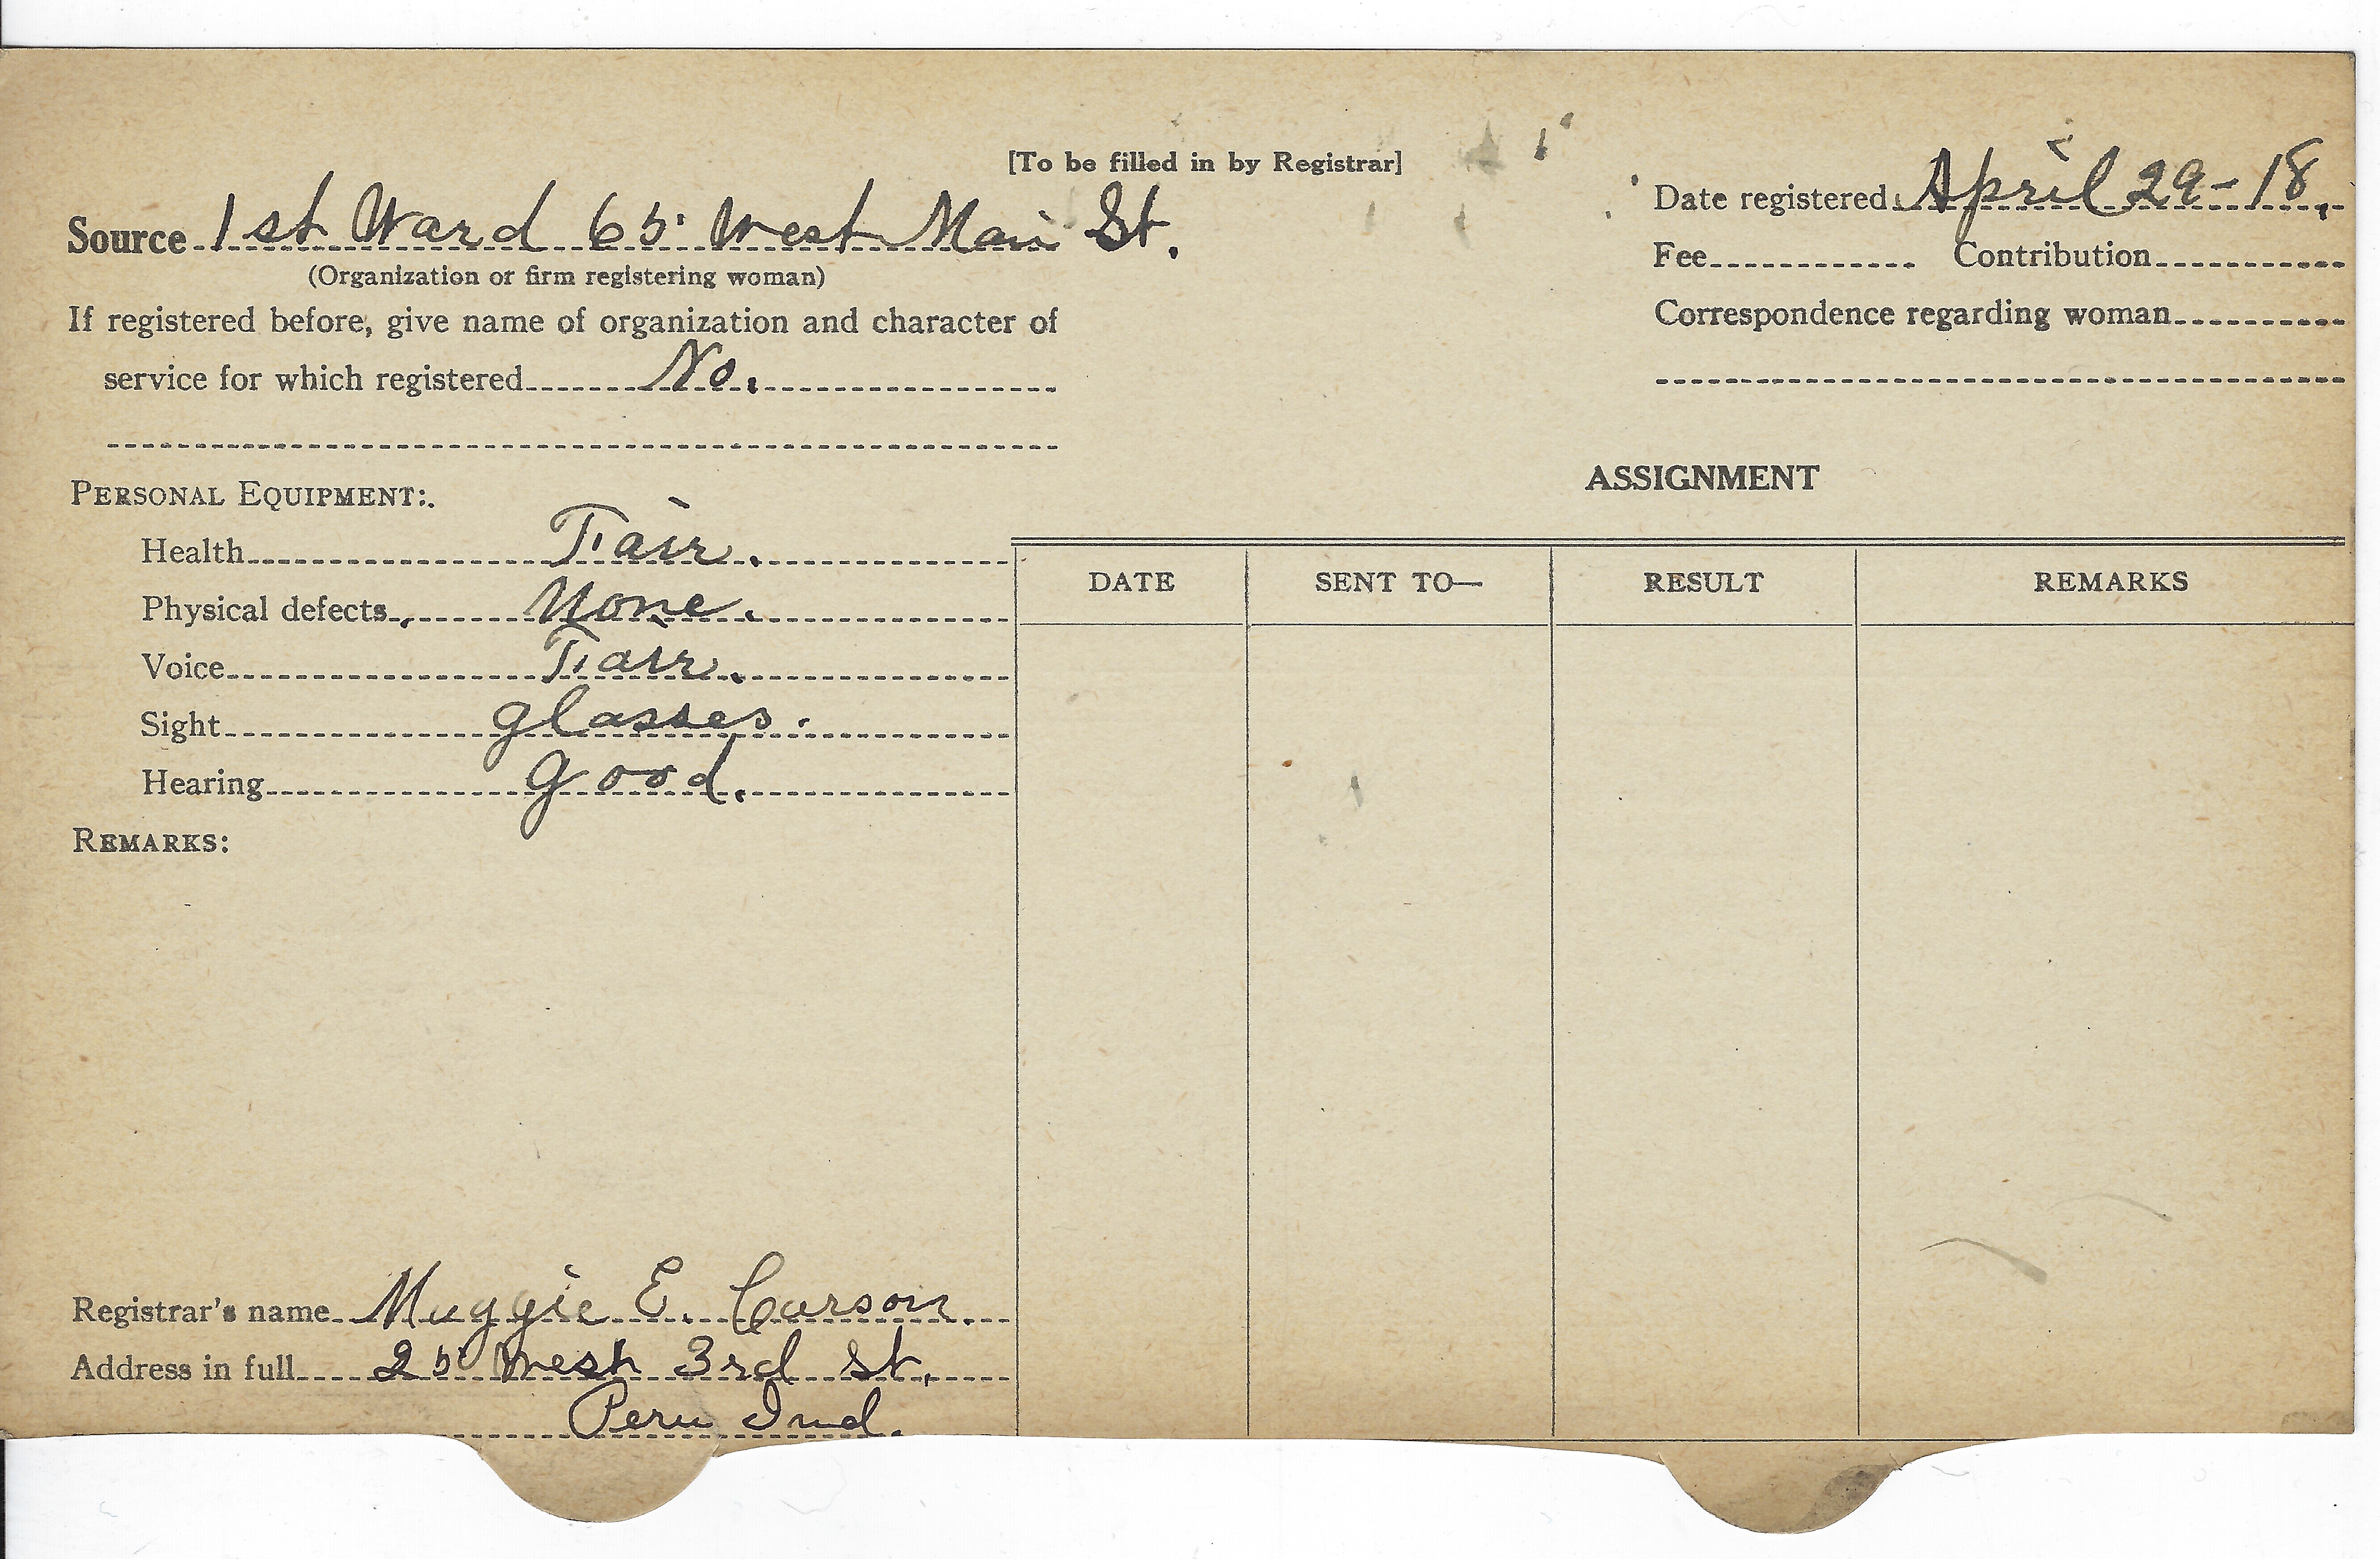 [To be filled in by Registrar]
Source 1st Ward 65 West Main St.
(Organization or firm registering woman)
If registered before, give name of organization and character of
service for which registered No.
Date registered April 29-18.
Fee Contribution
Correspondence regarding woman
PERSONAL EQUIPMENT:
Health Fair.
Physical defects None.
Voice Fair.
Sight glasses.
Hearing good.
REMARKS:
ASSIGNMENT
DATE SENT TO— RESULT REMARKS
Registrar's name Maggie E. Carson.
Address in full 25 West 3rd St.
Peru Ind.